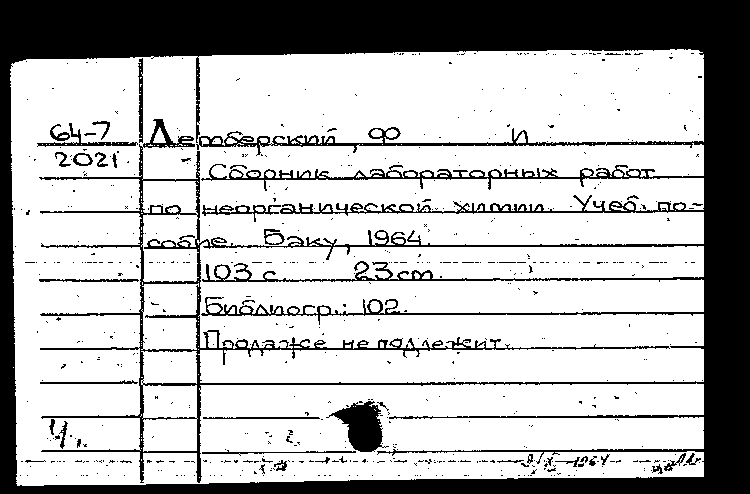 64-7 Летберский, Ф И
2021
Сборник лабораторных работ
по неорганической химии. Учеб. по-
собие. Баку, 1964.
103 с. 23 cm.
Библиогр.: 102.
Продаже не подлежит.